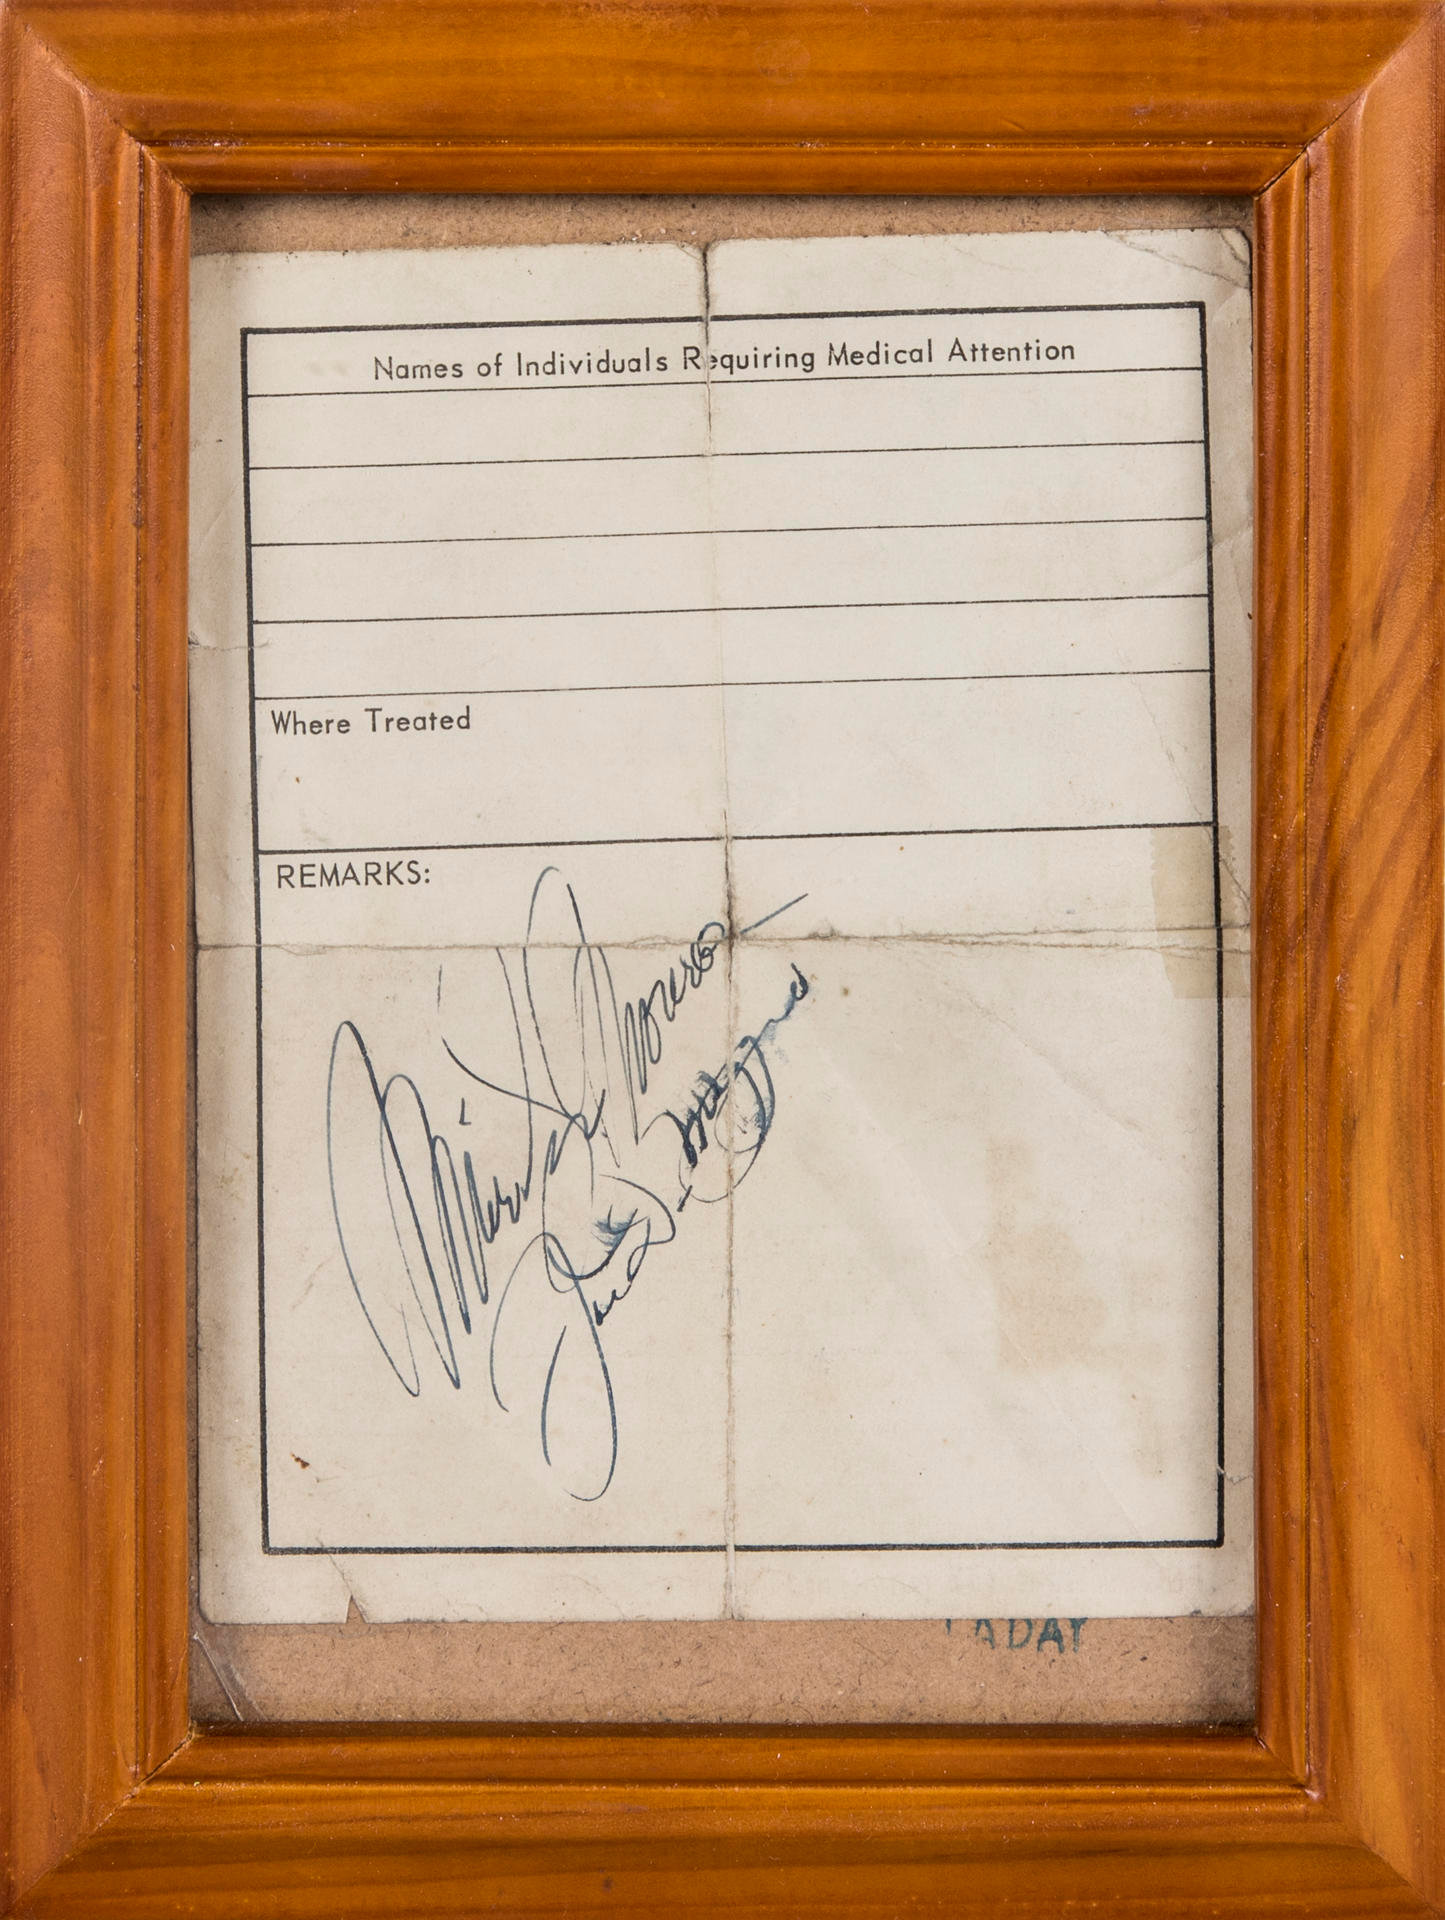 Names of Individuals Requiring Medical Attention
Where Treated
REMARKS:
Marilyn Monroe
Joe DiMaggio
A DAY